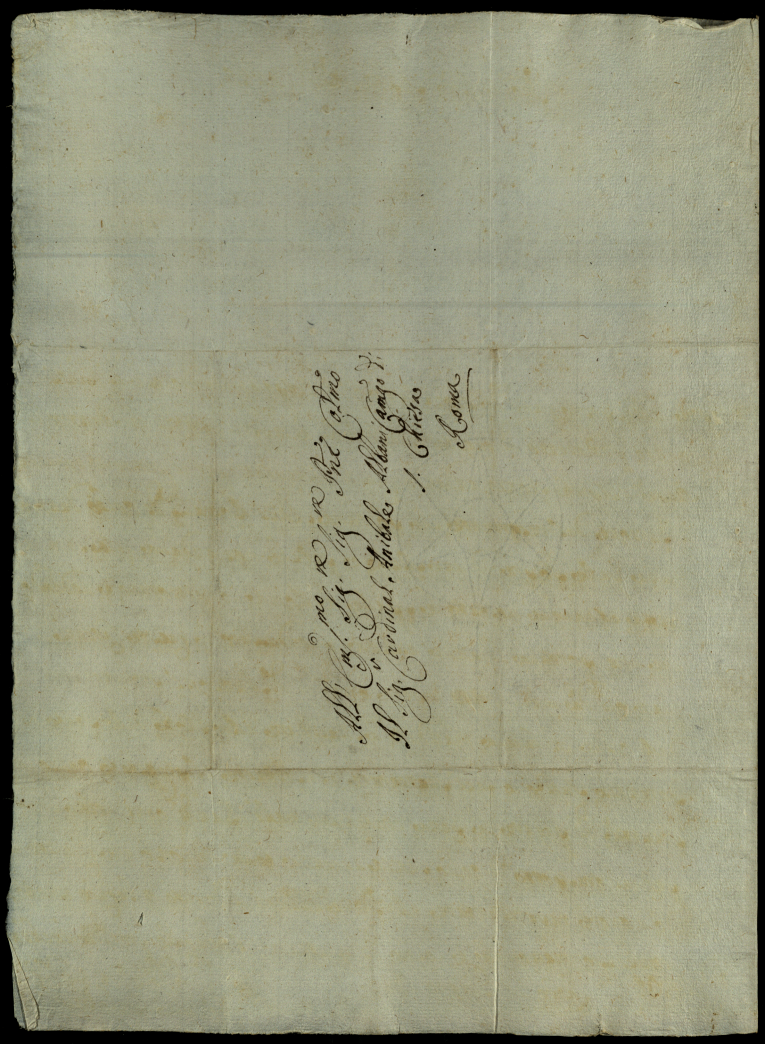 All' Em.mo Sig.re Sig.re Pñe Col.mo
Il Sig.r Cardinal Anibale Albani Camg.o di
S. Chiesa
Roma